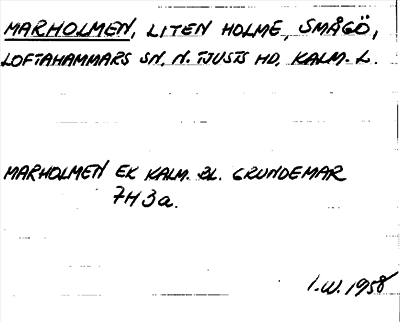 MARHOLMEN, LITEN HOLME, SMÅGÖ,
LOFTAHAMMARS SN, N. TJUSTS HD, KALM. L.
MARHOLMEN EK KALM. BL. GRUNDEMAR
7H3a.
I.W. 1958